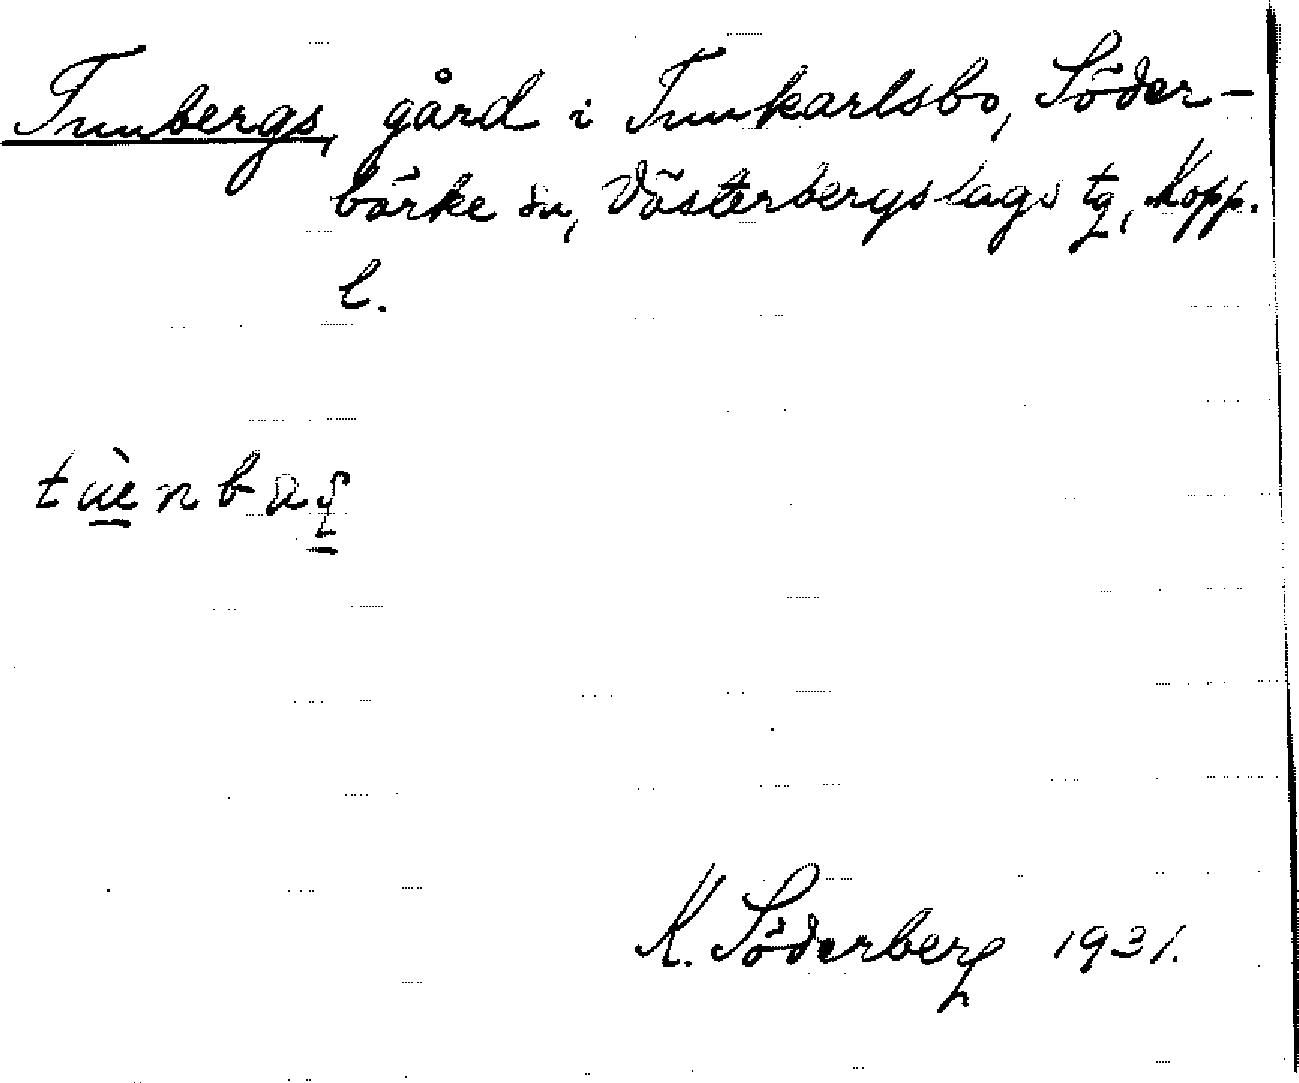 Tunbergs, gård i Tunkarlsbo, Söder-
bärke sn, Västerbergslags tg, Kopp.
l.
K. Söderberg 1931.